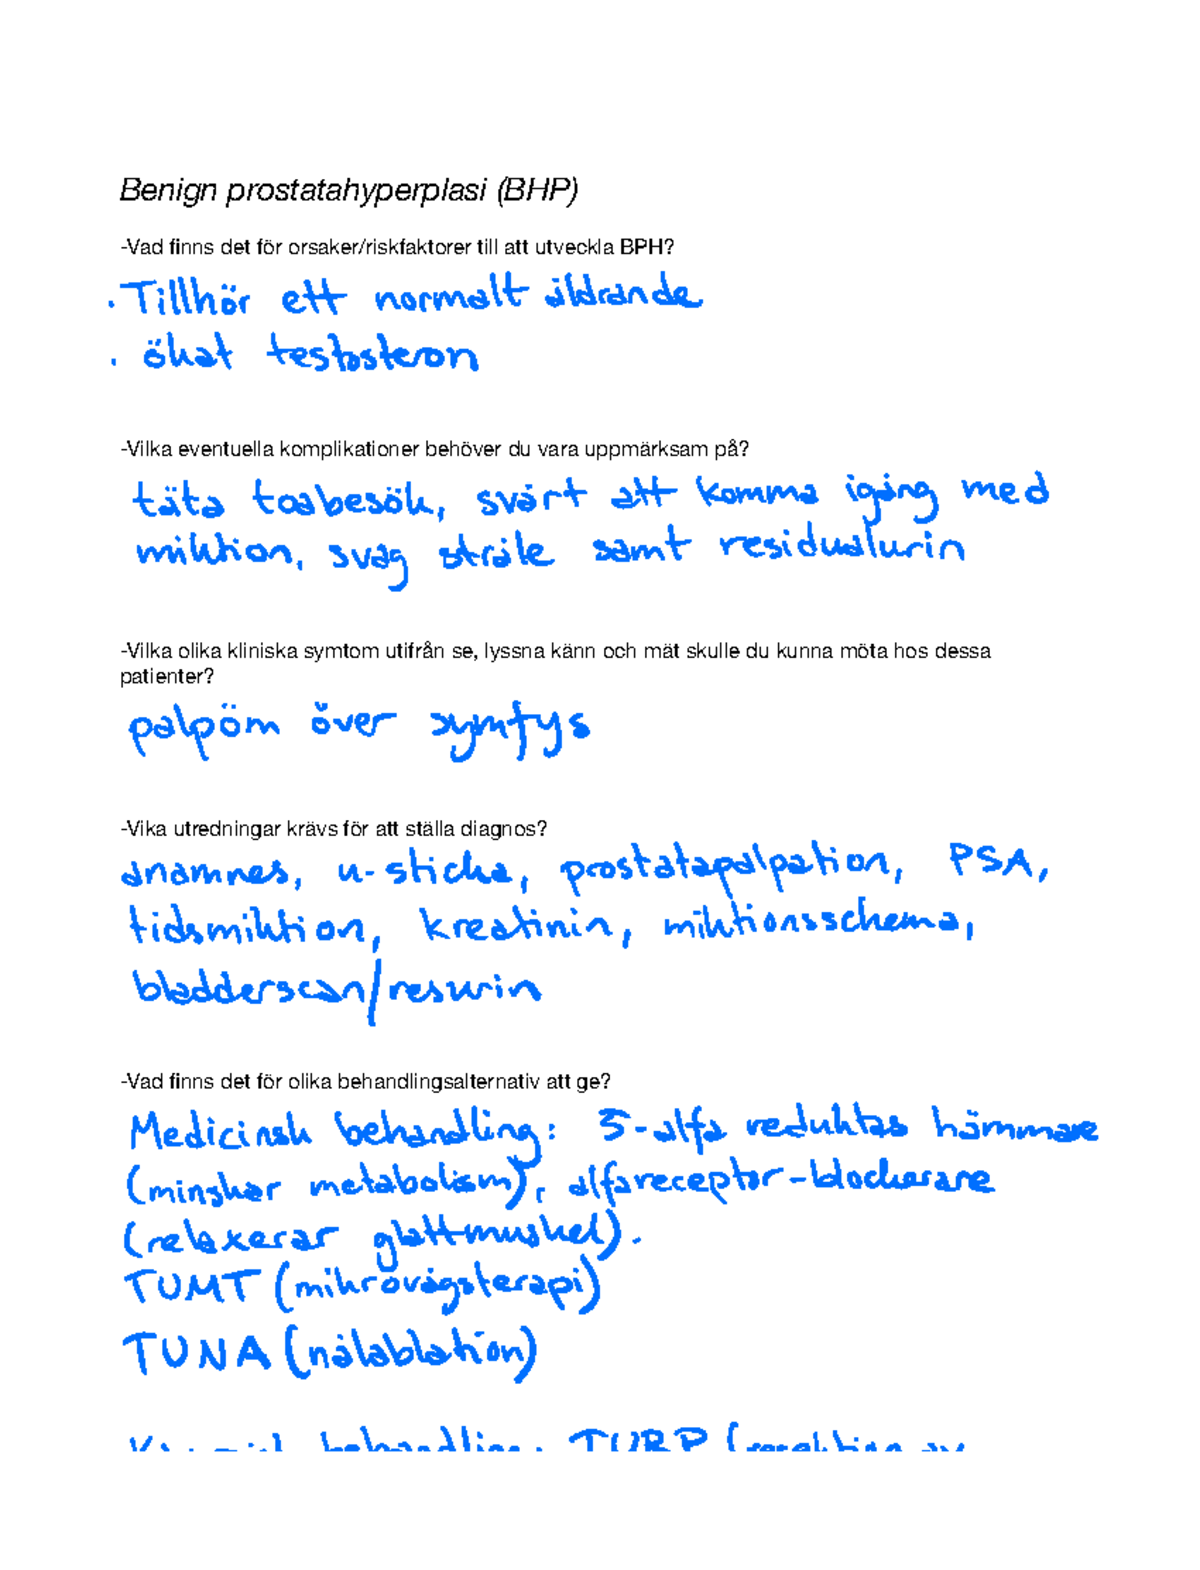 Benign prostatahyperplasi (BHP)
-Vad finns det för orsaker/riskfaktorer till att utveckla BPH?
· Tillhör ett normalt åldrande
· ökat testosteron
-Vilka eventuella komplikationer behöver du vara uppmärksam på?
täta toabesök, svårt att komma igång med
miktion, svag stråle samt residualurin
-Vilka olika kliniska symtom utifrån se, lyssna känn och mät skulle du kunna möta hos dessa
patienter?
palpöm över symfys
-Vika utredningar krävs för att ställa diagnos?
anamnes, u-sticka, prostatapalpation, PSA,
tidsmiktion, kreatinin, miktionsschema,
bladderscan/resurin
-Vad finns det för olika behandlingsalternativ att ge?
Medicinsk behandling: 5-alfa reduktas hämmare
(minskar metabolism), alfareceptor-blockerare
(relaxerar glattmuskel).
TUMT (mikrovågsterapi)
TUNA (nålablation)
behandling: TURP (resektion av